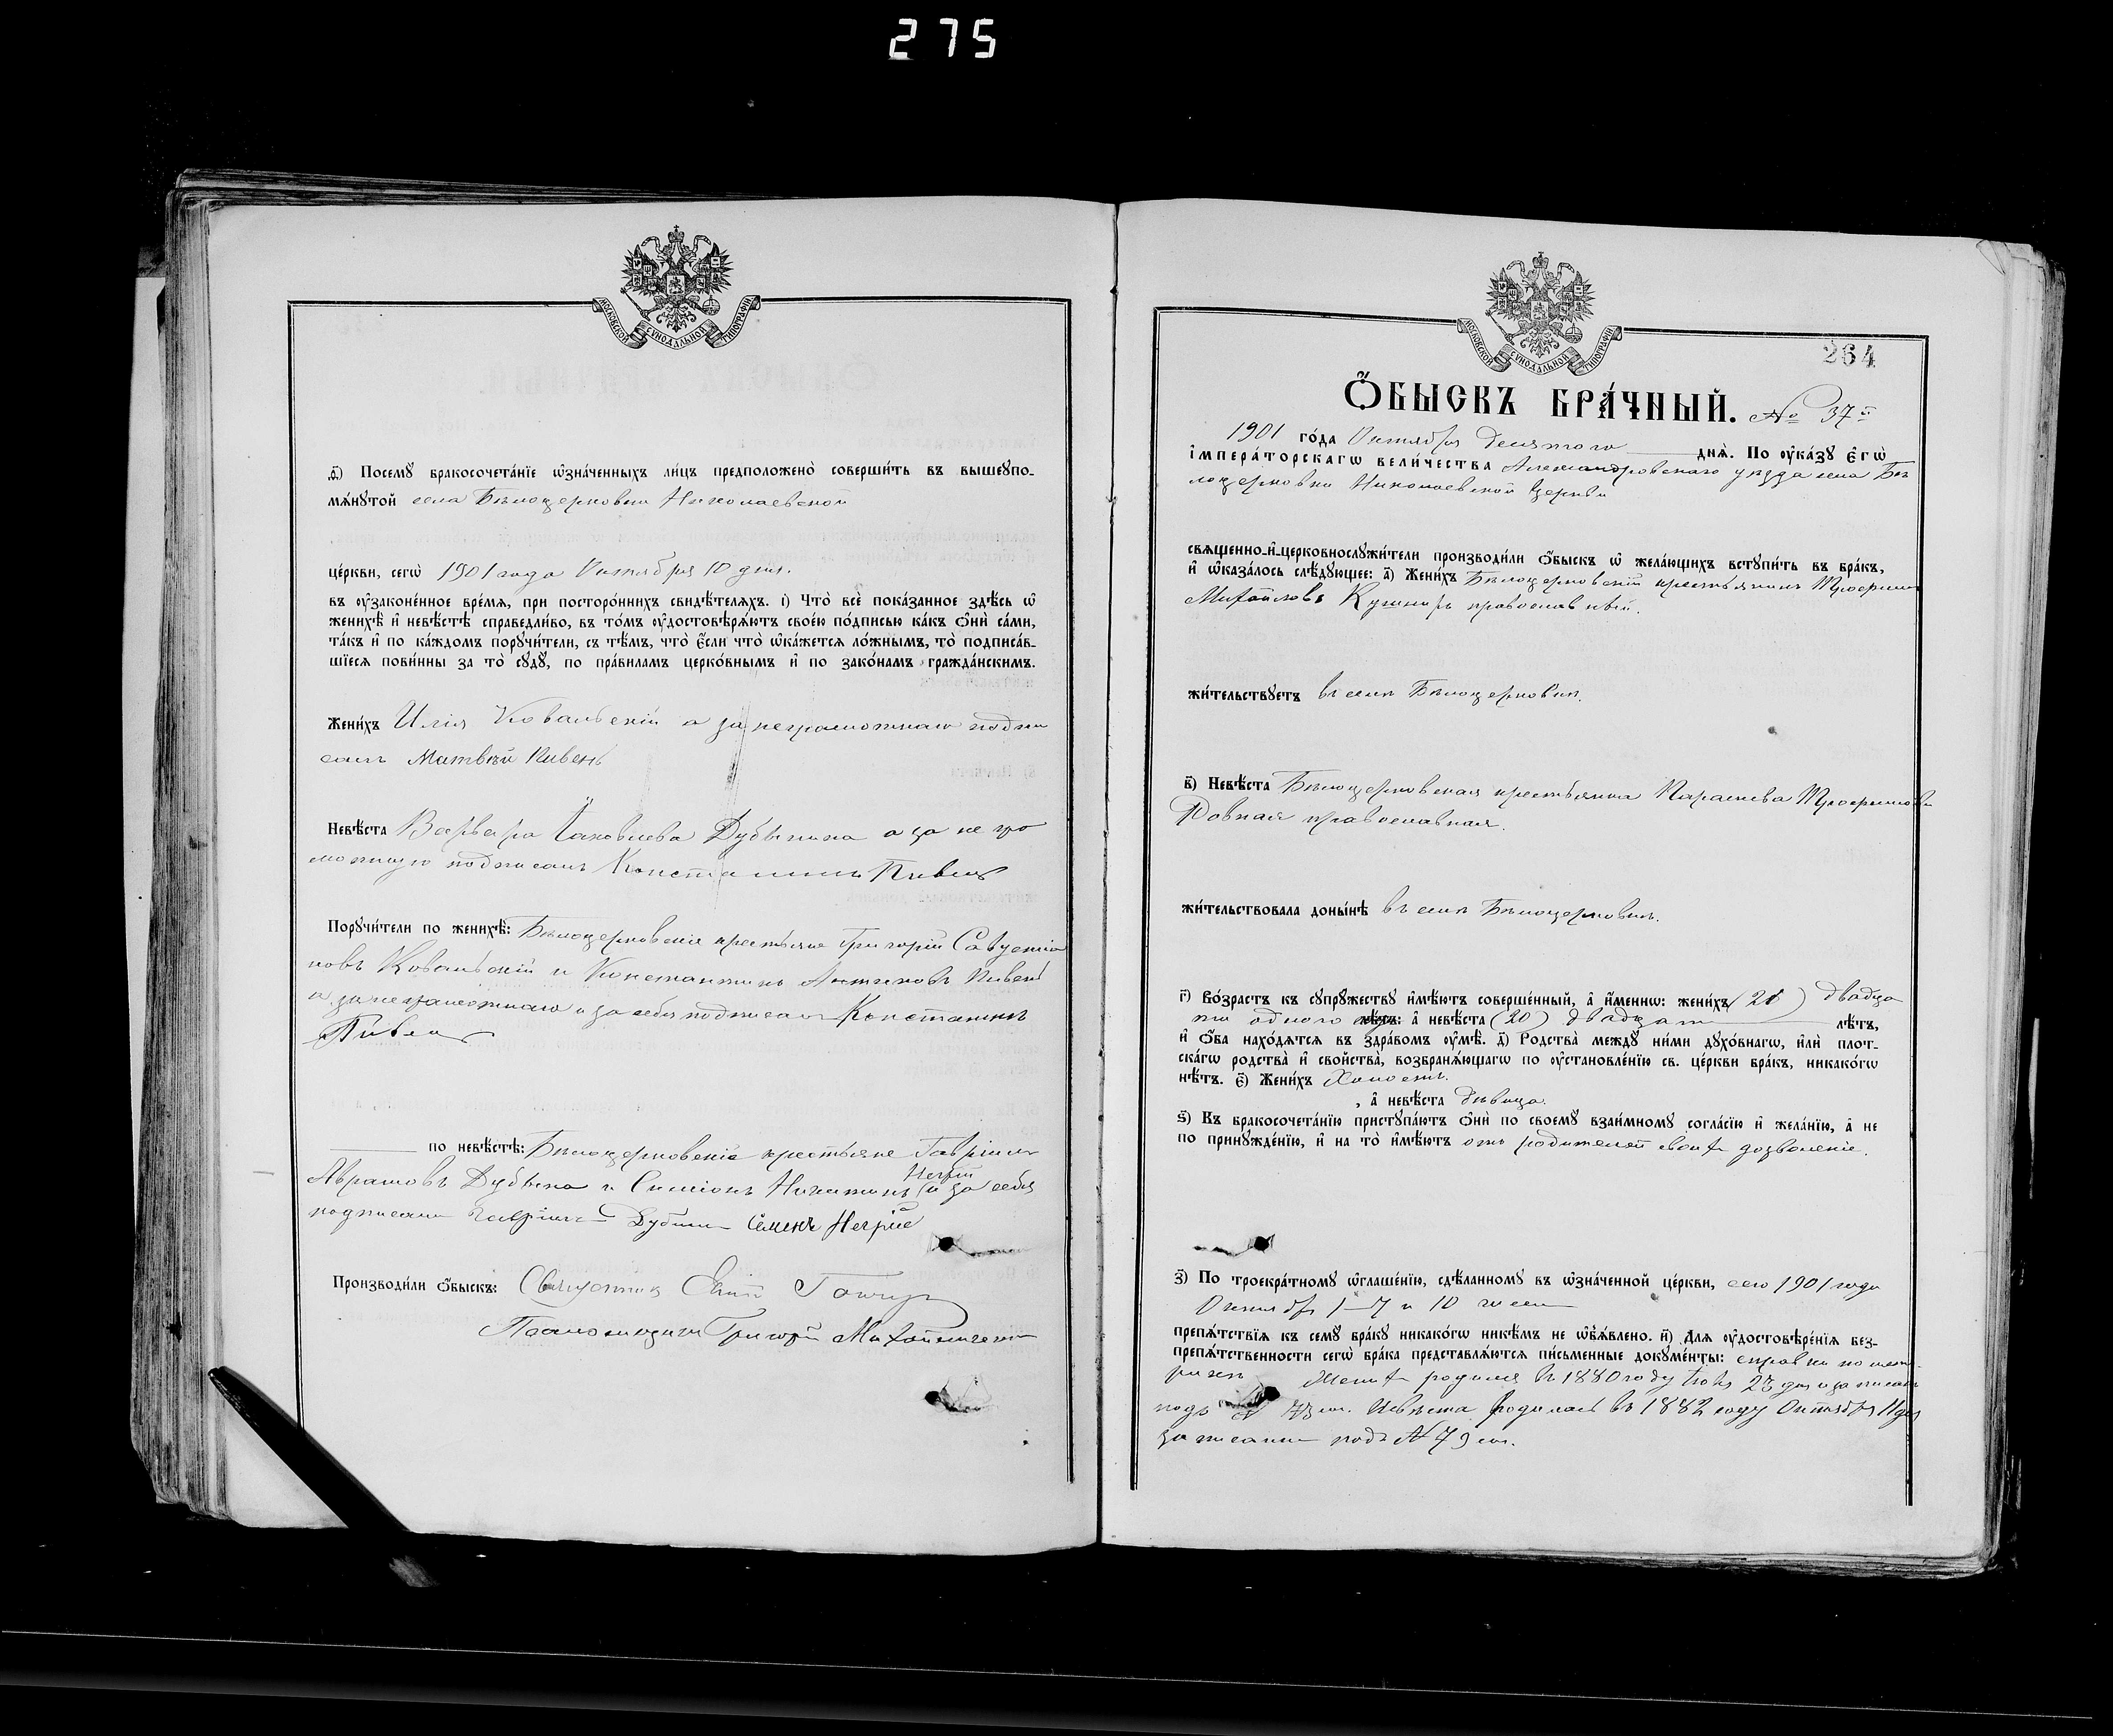 275
МОСКОВСКОЙ СУНОДАЛЬНОЙ ТИПОГРАФІИ
ѳ҃) Посемꙋ̀ бракосочета́нїе ѡ҆зна́ченныхъ ли́цъ предположено̀ соверши́ть въ вышеꙋпо-
мѧ́нꙋтой села Бѣлоцерковки Николаевской
це́ркви, сегѡ̀ 1901 года Октября 10 дня.
въ ᲂу҆зако́ненное вре́мѧ, при посторо́ннихъ свидѣ́телѧхъ. і҃) Что̀ всѐ пока́занное здѣ́сь ѡ҆
женихѣ̀ и҆ невѣ́стѣ справедли́во, въ то́мъ ᲂу҆достовѣрѧ́ютъ свое́ю по́дписью ка́къ ѻ҆нѝ са́ми,
та́къ и҆ по ка́ждомъ порꙋчи́тели, съ тѣ́мъ, что̀ є҆́сли что̀ ѡ҆ка́жетсѧ ло́жнымъ, то̀ подписа́в-
шїесѧ пови́нны за то̀ сꙋдꙋ̀, по пра́виламъ церко́внымъ и҆ по зако́намъ гражда́нскимъ.
Жени́хъ Илія Ковальскій а за неграмотнаго подпи
салъ Матвѣй Пивень
Невѣ́ста Варвара Яковлева Дубинина а за не гра
мотную подписалъ Константинъ Пивень
Порꙋчи́тели по женихѣ̀: Бѣлоцерковскіе крестьяне Григорій Савустіа
новъ Ковальскій и Константинъ Пивень
а за неграмотнаго и за себя подписалъ Константинъ
Пивень
по невѣ́стѣ: Бѣлоцерковскіе крестьяне Гавріилъ
Абрамовъ Дубина и Симіонъ Никитинъ Негрій и за себя
подписали Гавріилъ Дубина Семенъ Негрій
Производи́ли ѻ҆́быскъ: Священникъ
Псаломщикъ Григорій Михайличенко
МОСКОВСКОЙ СУНОДАЛЬНОЙ ТИПОГРАФІИ
264
Ѻ҆́БЫСКЪ БРА́ЧНЫЙ. № 37й
1901 го́да Октября десятаго днѧ̀. По ᲂу҆ка́зꙋ Є҆гѡ̀
І҆мпера́торскагѡ вели́чества Александровскаго уѣзда села Бѣ
лоцерковки Николаевской церкви
свѧще́нно-и҆-церковнослꙋжи́тели производи́ли ѻ҆́быскъ ѡ҆ жела́ющихъ встꙋпи́ть въ бра́къ,
и҆ ѡ҆каза́лось слѣ́дꙋющее: а҃) Жени́хъ Бѣлоцерковскій крестьянинъ Трофимъ
Михайловъ Кушниръ православный.
жи́тельствꙋетъ въ селѣ Бѣлоцерковкѣ.
в҃) Невѣ́ста Бѣлоцерковская крестьянка Параскева Трофимова
Ровная православная.
жи́тельствовала доны́нѣ въ селѣ Бѣлоцерковкѣ.
г҃) Во́зрастъ къ сꙋпрꙋ́жествꙋ и҆мѣ́ютъ соверше́нный, а҆ и҆́меннѡ: жени́хъ (21) двадца
ти одного лѣ́тъ: а҆ невѣ́ста (20) двадцати лѣ́тъ,
и҆ ѻ҆́ба нахо́дѧтсѧ въ здра́вомъ ᲂу҆мѣ̀. д҃) Родства̀ междꙋ̀ ни́ми дꙋхо́внагѡ, и҆лѝ плот-
ска́гѡ родства̀ и҆ сво́йства̀, возбранѧ́ющагѡ по ᲂу҆становле́нїю св. це́ркви бра́къ, никако́гѡ
нѣ́тъ. є҃) Жени́хъ Холостъ.
, а҆ невѣ́ста дѣвица.
ѕ҃) Къ бракосочета́нїю пристꙋпа́ютъ ѻ҆нѝ по своемꙋ̀ взаи́мномꙋ согла́сїю и҆ жела́нїю, а҆ не
по принꙋжде́нїю, и҆ на то̀ и҆мѣ́ютъ отъ родителей своихъ дозволеніе.
з҃) По троекра́тномꙋ ѡ҆глаше́нїю, сдѣ́ланномꙋ въ ѡ҆зна́ченной це́ркви, сего 1901 года
Октября 1–7 и 10 числа
препѧ́тствїѧ къ семꙋ̀ бра́кꙋ никако́гѡ никѣ́мъ не ѡ҆б̾ѧ́влено. и҃) Длѧ ᲂу҆достовѣре́нїѧ без-
препѧ́тственности сегѡ̀ бра́ка представлѧ́ютсѧ пи́сьменные докꙋме́нты: справки по мет-
рикѣ Женихъ родился въ 1880 году 23 дня и записанъ
подъ № Невѣста родилась въ 1882 году Октября 11 дня
записана подъ № 79